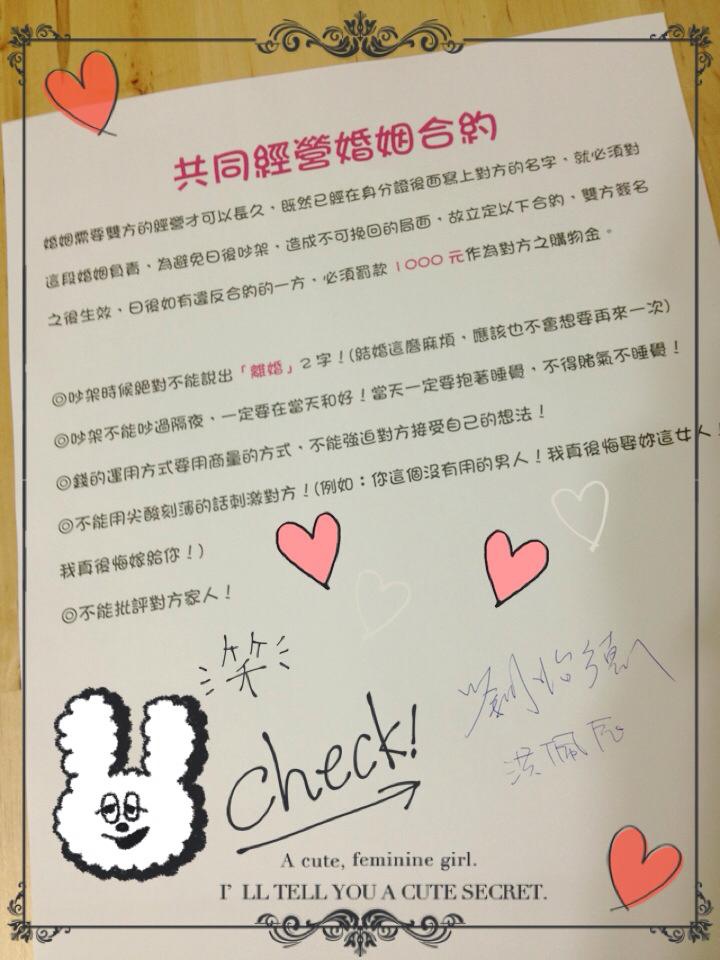 共同經營婚姻合約
婚姻需要雙方的經營才可以長久，既然已經在身分證後面寫上對方的名字，就必須對
這段婚姻負責，為避免日後吵架，造成不可挽回的局面，故立定以下合約，雙方簽名
之後生效，日後如有違反合約的一方，必須罰款1000元作為對方之購物金。
◎吵架時候絕對不能說出「離婚」2字！(結婚這麼麻煩，應該也不會想要再來一次)
◎吵架不能吵過隔夜，一定要在當天和好！當天一定要抱著睡覺，不得賭氣不睡覺！
◎錢的運用方式要用商量的方式，不能強迫對方接受自己的想法！
◎不能用尖酸刻薄的話刺激對方！(例如：你這個沒有用的男人！我真後悔娶妳這女人！
我真後悔嫁給你！)
◎不能批評對方家人！
笑
check!
洪佩
A cute, feminine girl.
I'LL TELL YOU A CUTE SECRET.